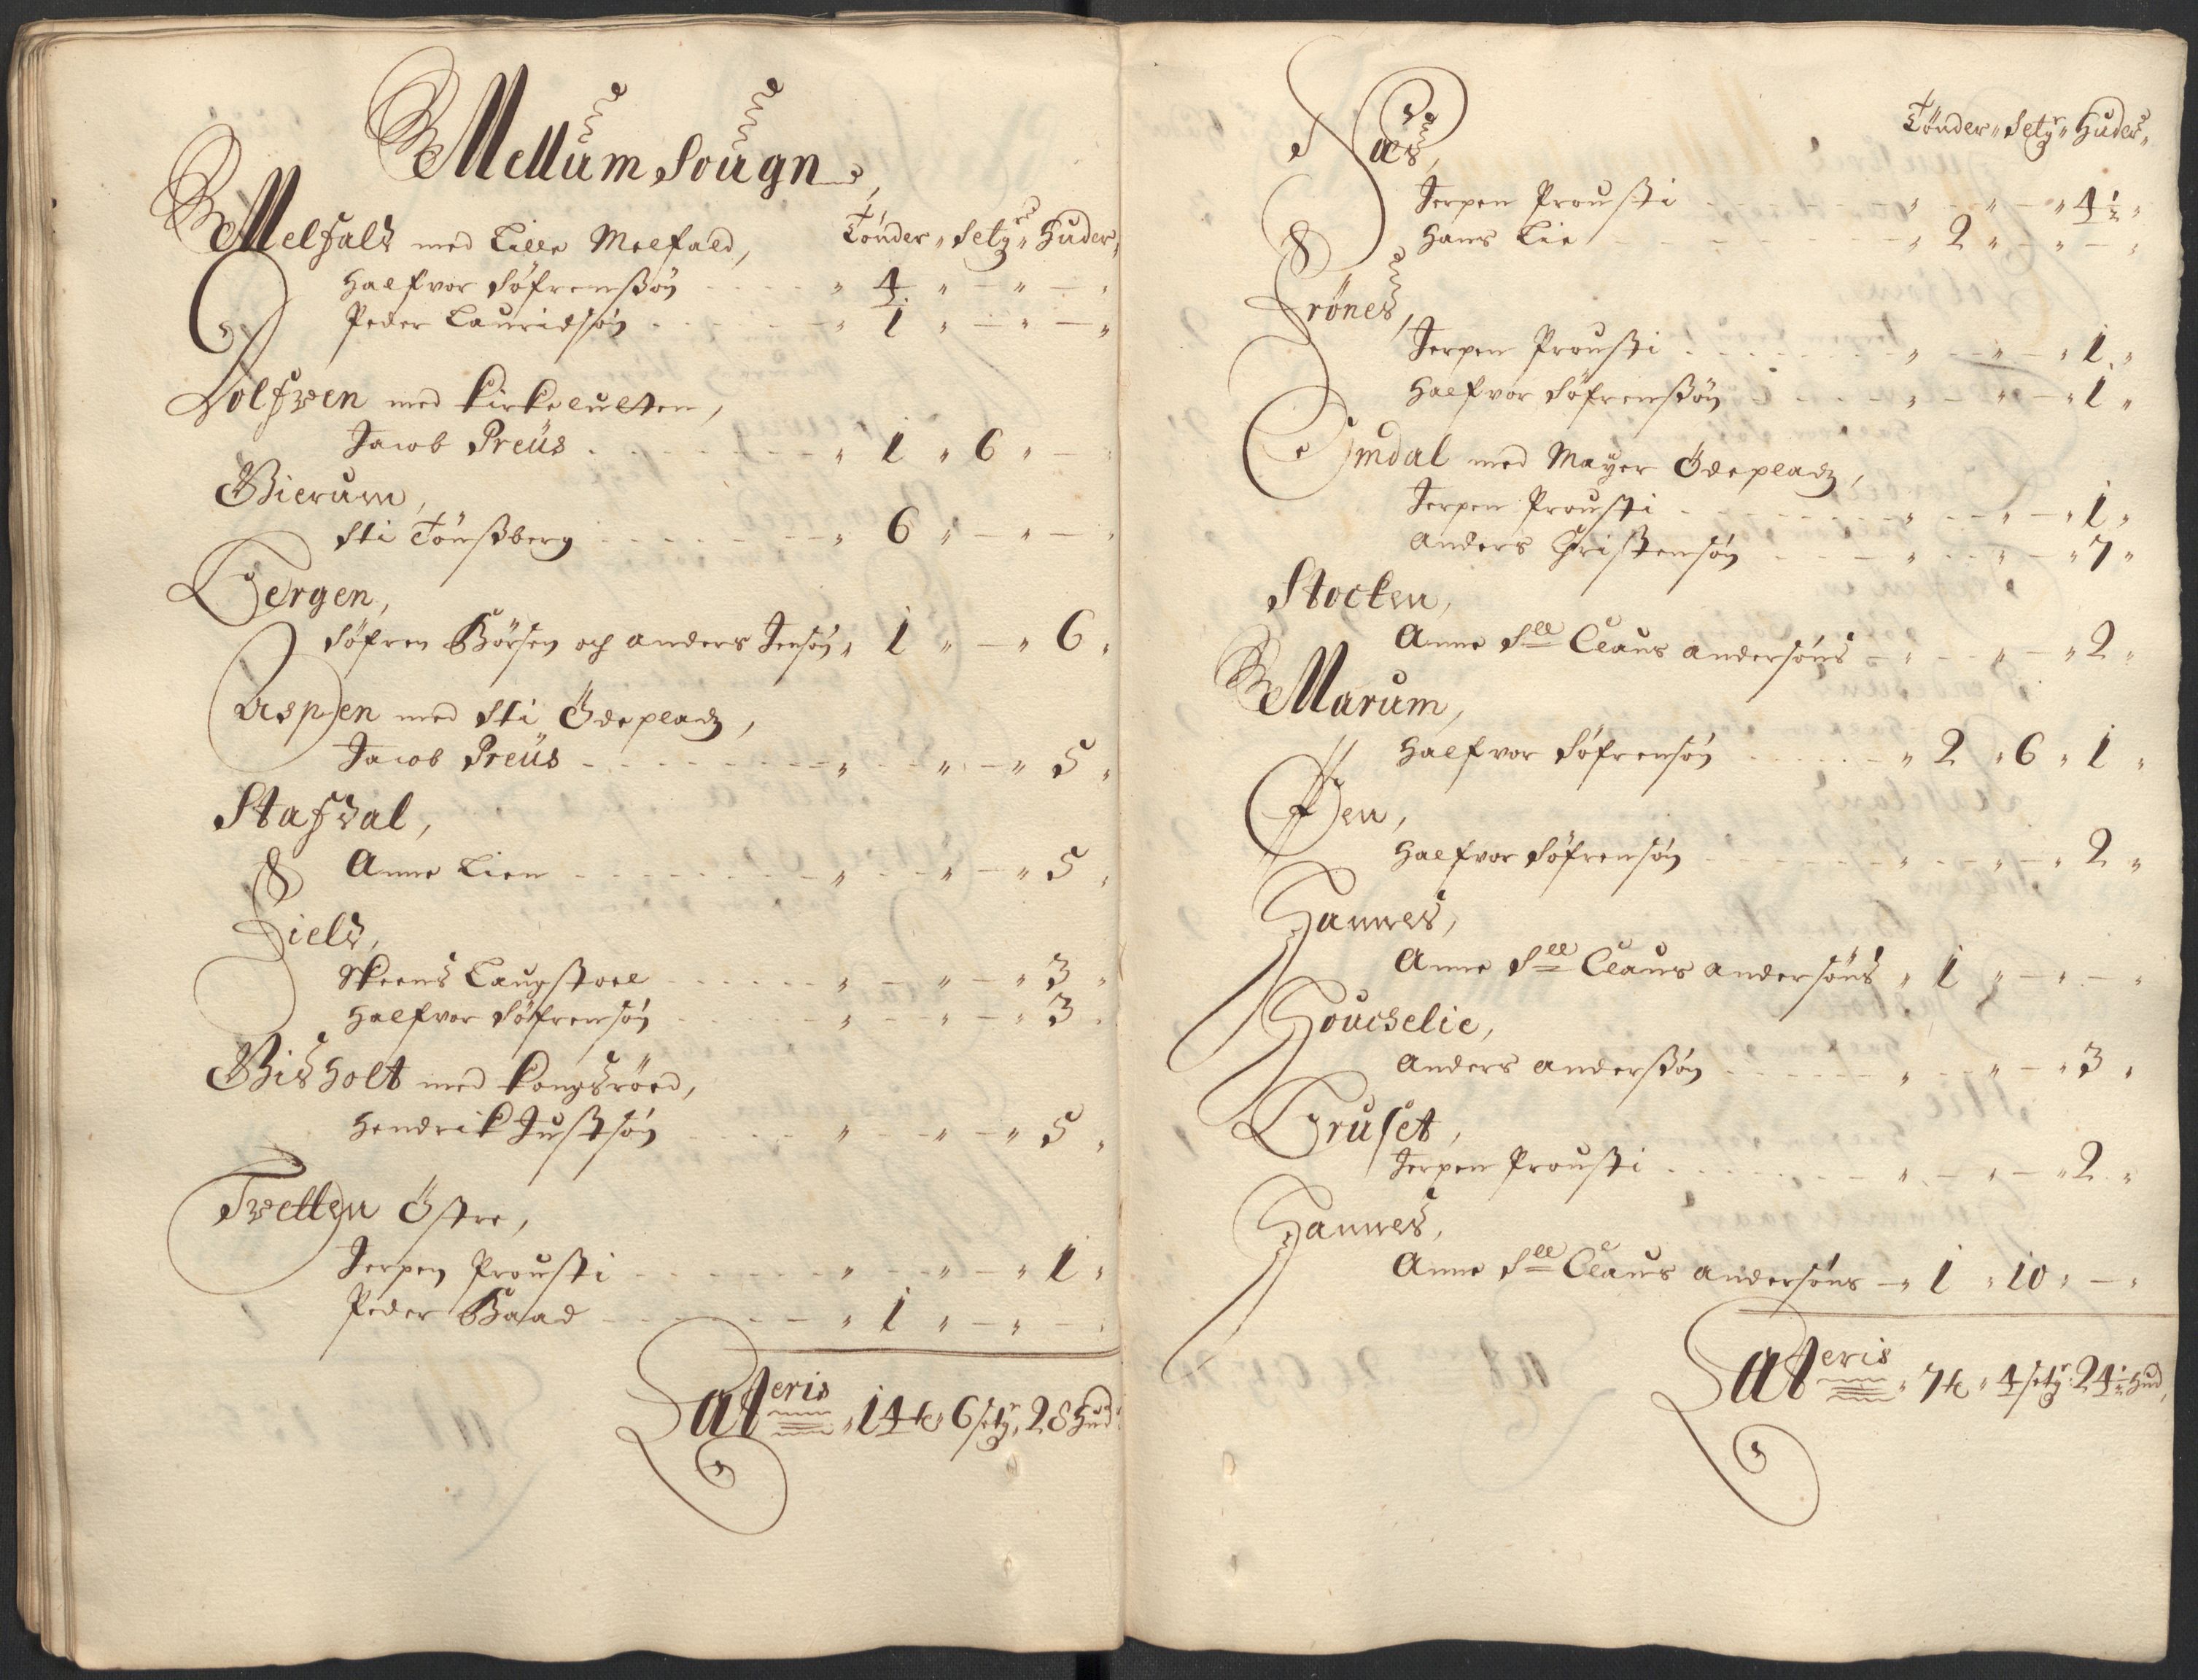 Mellum Sougn,
Melfald med Lille Melfald, Tönder " Setg̃r " Huder "
Halfvor Söfrenssøn " 4 " — " — "
Peder Lauridsøn " 1 " — " — "
Holfven med Kirkelulten,
Jacob Preüs " 1 " 6 " —
Bierum,
Sti Tönsberg " 6 " — " — "
Bergen,
Söfren Börsen och Anders Jensøn " 1 " — " 6 "
Aspen med Sti Ödepladz,
Jacob Preüs " — " — " 5 "
Stafdal,
Anne Lien " — " — " 5 "
Field,
Skeens Laugstoel " — " — " 3 "
Halfvor Söfrensøn " — " — " 3 "
Bisholt med Kongsröed,
Hendrik Justsøn " — " — " 5 "
Tvetten Östre,
Jerpen Prousti " — " — " 1 "
Peder Baad " 1 " — " — "
Lateris " 14 t " 6 setgr " 28 Hud
Tönder " Setgr " Huder "
Næs,
Jerpen Prousti " — " — " 4½ "
Hans Lie " 2 " — " — "
Frönes,
Jerpen Prousti " — " — " 1 "
Halfvor Söfrenssøn " — " — " 1 "
Omdal med Mayer Ödepladz,
Jerpen Prousti " — " — " 1 "
Anders Christensøn " — " — " 7 "
Stocken,
Anne Sll Claus Andersøns " — " — " 2 "
Marum,
Halfvor Söfrensøn " 2 " 6 " 1 "
Øen,
Halfvor Söfrensøn " — " — " 2 "
Hannes,
Anne Sll Claus Andersøns " 1 " — " — "
Houcselie,
Anders Anderssøn " — " — " 3 "
Gruset,
Jerpen Prousti " — " — " 2 "
Hannes,
Anne Sll Claus Andersøns " 1 " 10 " — "
Lateris " 7 t " 4 setgr 24½ Hud,